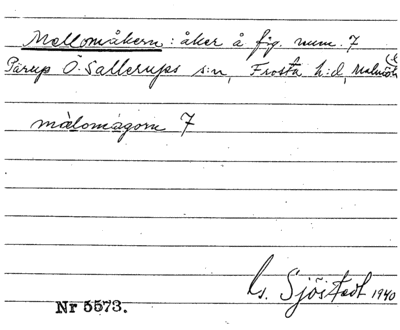 Mellomåkern : åker å fig. num. 7
Pärup Ö. Sallerups s:n, Frosta h:d, Malmöh
målomågorn 7
Gs. Sjöstedt 1940
Nr 5573.